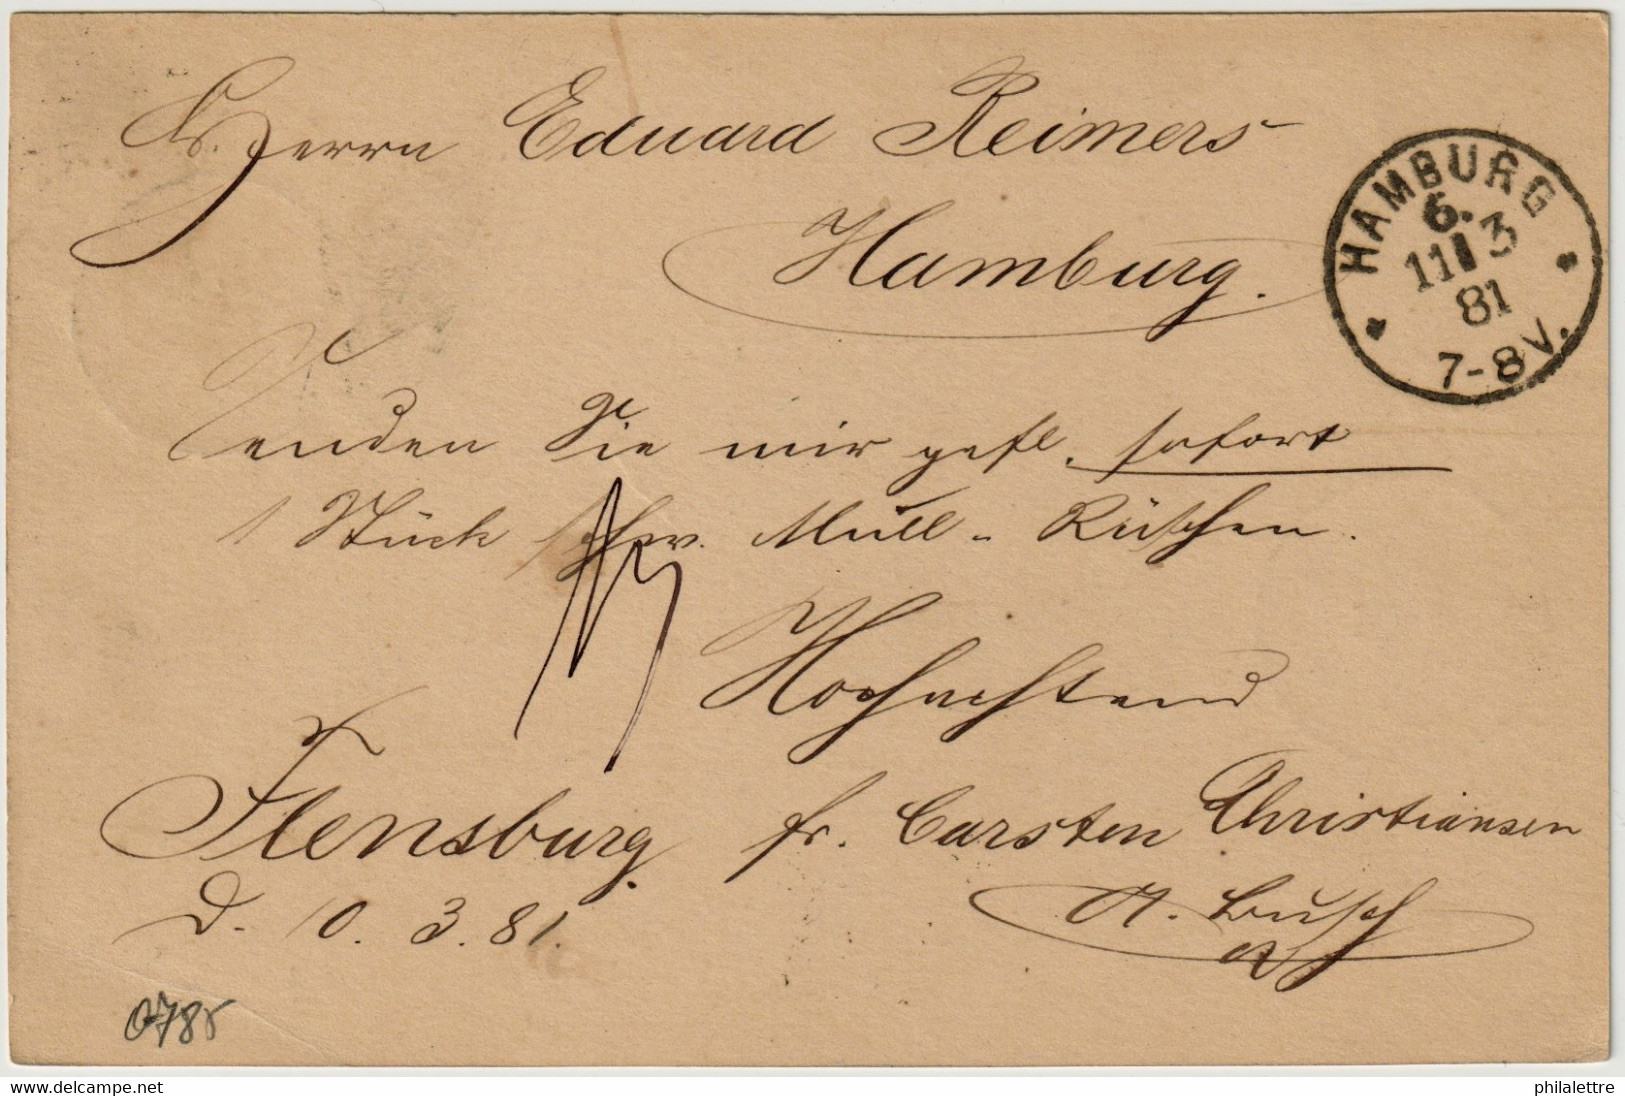 Herrn Eduard Reimers
Hamburg.
HAMBURG
6.
11 3
81
7-8V.
Senden Sie mir gefl. sofort
1 Stück schw. Müll-Rüschen.
Hochachtend
Flensburg. fr. Carsten Christiansen
d. 10.3.81. A. Busch
0785
www.delcampe.net
philalettre